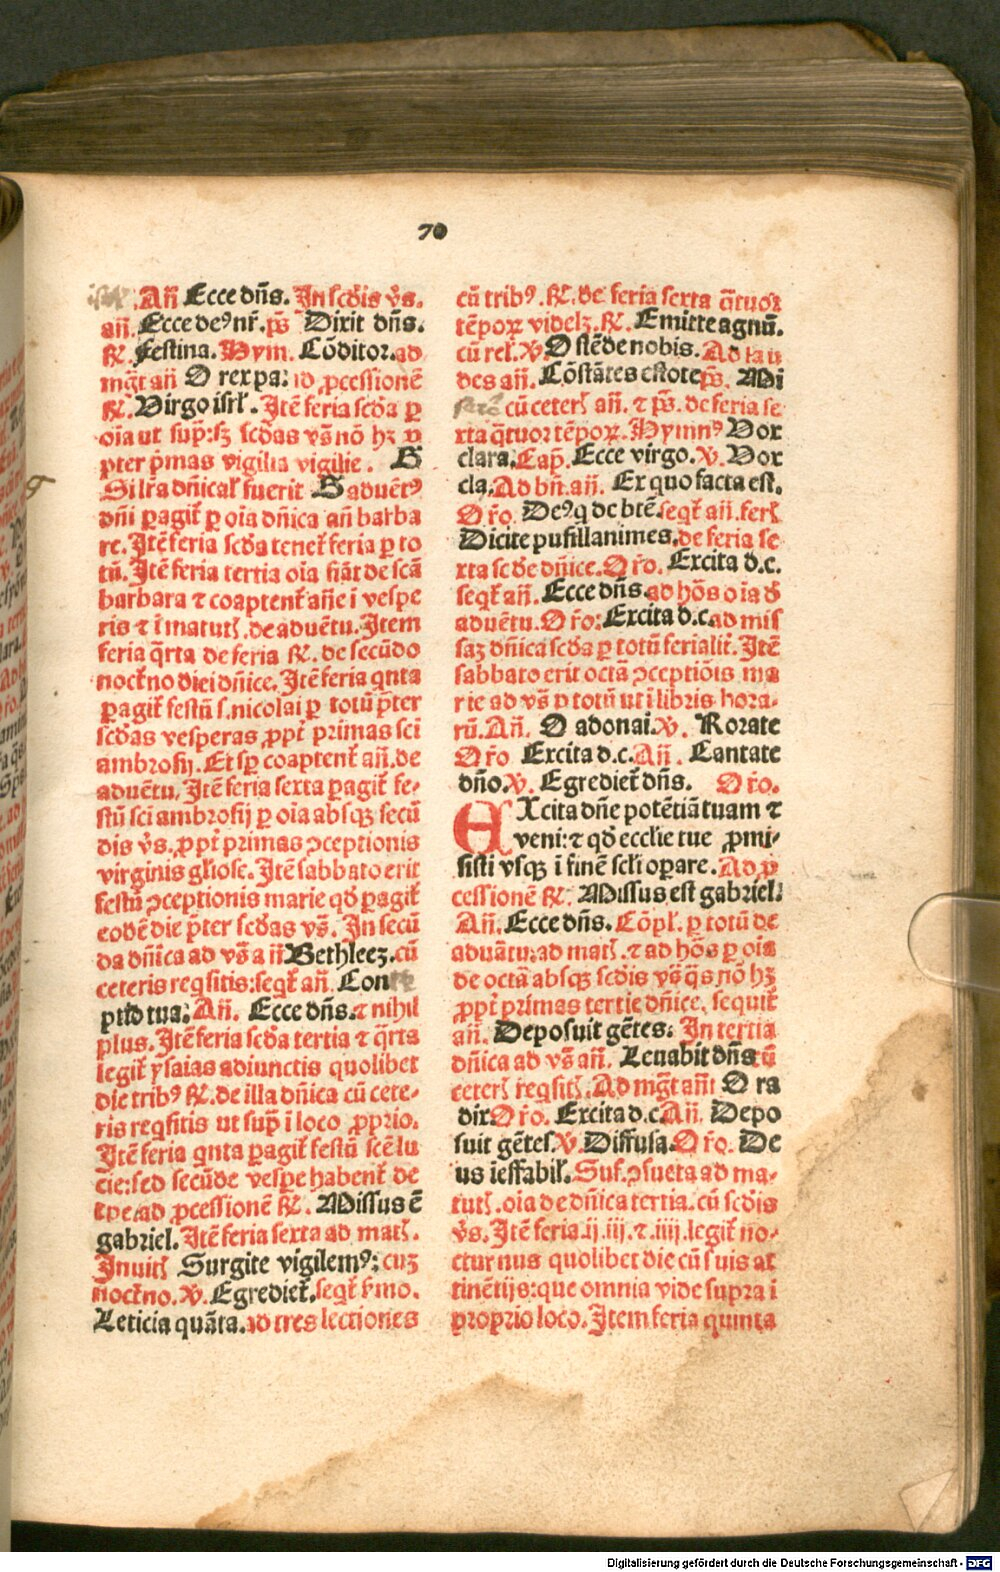 70
Añ Ecce dñs. In scd̄is v̄s.
añ. Ecce deꝰ nr̄. p̄s Dixit dñs.
℟. Festina. Hym. Cōditor. ad
mg̅t añ O rex pa: ad ꝓcessionē
℟. Virgo isrl̄. Itē feria scd̄a p
oīa ut supͣ: sꝫ scd̄as vs̄ nō hꝫ p
pter p̄mas vigilia vigilie. B
Si lr̄a dñical̄ fuerit B aduētꝰ
dñi pagit̄ p oīa dñica añ barba
re. Itē feria scd̄a tenet̄ feria p to
tū. Itē feria tertia oīa fiāt de scā
barbara ⁊ coaptent̄ añe ī vespe
ris ⁊ ī matutꝭ. de aduētu. Item
feria q̄rta de feria ℟. de secūdo
noct̄no diei dñice. Itē feria qnta
pagit̄ festū s. nicolai p totū p̄ter
scd̄as vesperas ꝓpt̄ primas sci
ambrosij. Et sꝑ coaptent̄ añ. de
aduētu. Itē feria sexta pagit̄ fe-
stū sci ambrosij p oīa absqꝫ secū
dis v̄s. ꝓpt̄ primas ↄceptionis
virginis gliose. Itē sabbato erit
festū ↄceptionis marie qd̄ pagit̄
eodē die p̄ter scd̄as vs̄. In secū
da dñica ad vs̄ añ Bethleeꝫ. cū
ceteris reqsitis: seqt̄ añ. Con
ptid tua: Añ. Ecce dñs. ⁊ nihil
plus. Itē feria scd̄a tertia ⁊ q̄rta
legit̄ ysaias adiunctis quolibet
die tribꝰ ℟. de illa dñica cū cete-
ris reqsitis ut sup̄ ī loco ꝓprio.
Itē feria qnta pagit̄ festū scē lu
cie: sed secūde vespe habent̄ de
tpe. ad ꝓcessionē ℟. Missus ē
gabriel. Itē feria sexta ad matꝭ.
Inuitꝭ Surgite vigilemꝰ: cuꝫ
noct̄no. ℣. Egrediet̄. seqt̄ ꝟmo.
Leticia quāta. ad tres lectiones
cū tribꝰ. ℟. de feria sexta q̄tuor
tēpoꝝ videlꝫ. ℟. Emitte agnū.
cū rel̄. ℣ Ostēde nobis. Ad lau
des añ. Cōstātes estote p̄s. Mi
cū ceterꝭ añ. ⁊ p̄s. de feria se
xta q̄tuor tēpoꝝ. Hymnꝰ Vox
clara. Cap̄. Ecce virgo. ℣. Vox
cla. Ad bñ. añ. Ex quo facta est.
Or̄o. Deꝰ q de btē. seqt̄ añ. ferꝭ
Dicite pusillanimes. de feria se
xta se de dñice. Or̄o. Excita d.c.
seqt̄ añ. Ecce dñs. ad hōs oīa d̄
aduētu. Or̄o: Excita d.c. ad mis
saꝫ dñica scd̄a p totū ferialit̄. Itē
sabbato erit octā ↄceptiōis ma
rie ad vs̄ p totū ut ī libris hora-
rū. Añ. O adonai. ℣. Rorate
Or̄o Excita d.c. Añ. Cantate
dño. ℣. Egrediet̄ dñs. Or̄o.
EXcita dñe potētiā tuam ⁊
veni: ⁊ qd̄ ecclie tue ꝓmi-
sisti vsqꝫ ī finē scli opare. Ad p
cessionē ℟. Missus est gabriel.
Añ. Ecce dñs. Cōpl̄. p totū de
aduātu. ad matꝭ. ⁊ ad hōs p oīa
de octā absqꝫ scd̄is vs̄ qs nō hꝫ
ꝓpt̄ primas tertie dñice. sequit̄
añ. Deposuit gētes: In tertia
dñica ad vs̄ añ. Leuabit dñs cū
ceterꝭ reqsitꝭ. Ad mg̅t añ: O ra
dix Or̄o. Excita d.c. Añ. Depo
suit gētes. ℣. Diffusa. Or̄o. De
us ieffabil̄. Suf. ↄsueta ad ma-
tutꝭ. oīa de dñica tertia. cū scd̄is
v̄s. Itē feria. ij. iij. ⁊. iiij. legit̄ no-
cturnus quolibet die cū suis at
tinētijs: que omnia vide supra ī
proprio loco. Item feria quinta
Digitalisierung gefördert durch die Deutsche Forschungsgemeinschaft - DFG